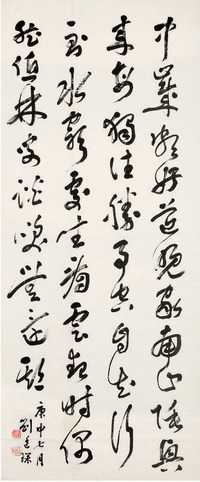 中歲頗好道晚家南山陲興
來每獨往勝事空自知行
到水窮處坐看雲起時偶
然值林叟談笑無還期
庚申七月
劉廷琛